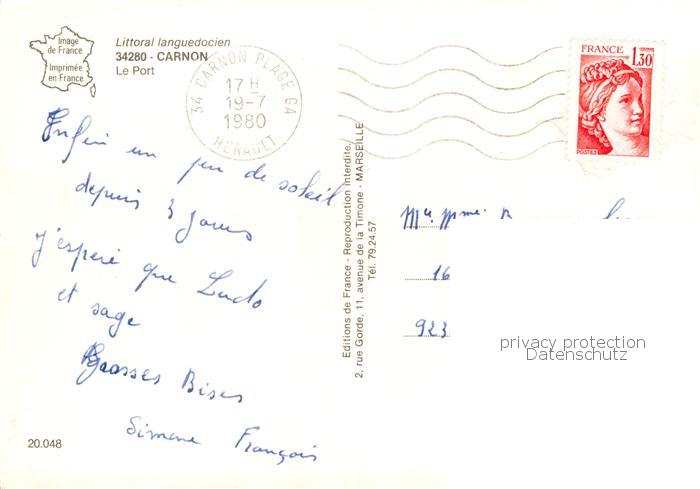 Image
de France
Imprimée
en France
Littoral languedocien
34280 - CARNON
Le Port
34 CARNON PLAGE GA
17 H
19-7
1980
HERAULT
FRANCE
1,30
POSTES
Enfin un peu de soleil
depuis 3 jours
J'espère que Ludo
et sage
Grosses Bises
Simone François
Editions de France - Reproduction interdite.
2, rue Gorde, 11, avenue de la Timone - MARSEILLE
Tél. 79.24.57
Mr Mme
16
923
privacy protection
Datenschutz
20.048